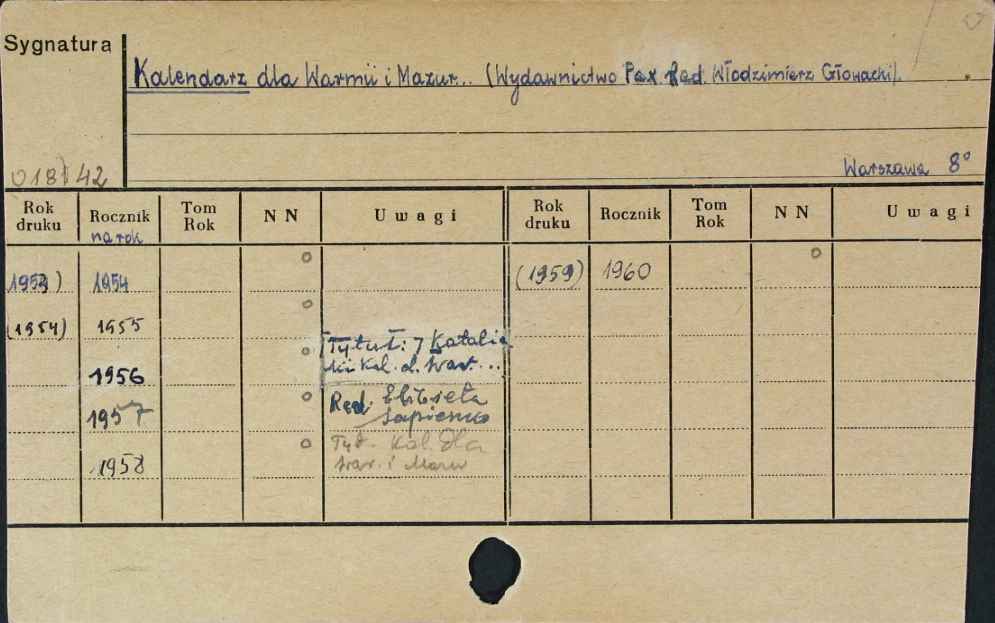 Sygnatura
Kalendarz dla Warmii i Mazur... (Wydawnictwo Pax. Red. Włodzimierz Głowacki).
018142
Warszawa 8°
Rok druku Rocznik na rok Tom Rok NN Uwagi Rok druku Rocznik Tom Rok NN Uwagi
(1953) 1954 (1959) 1960
(1954) 1955
1956 [Tytuł: Katolic
ki Kal. d. War. ...
1957 Red. Elżbieta
Sapieńko
1958 Tyt. Kal. dla
War. i Mazur